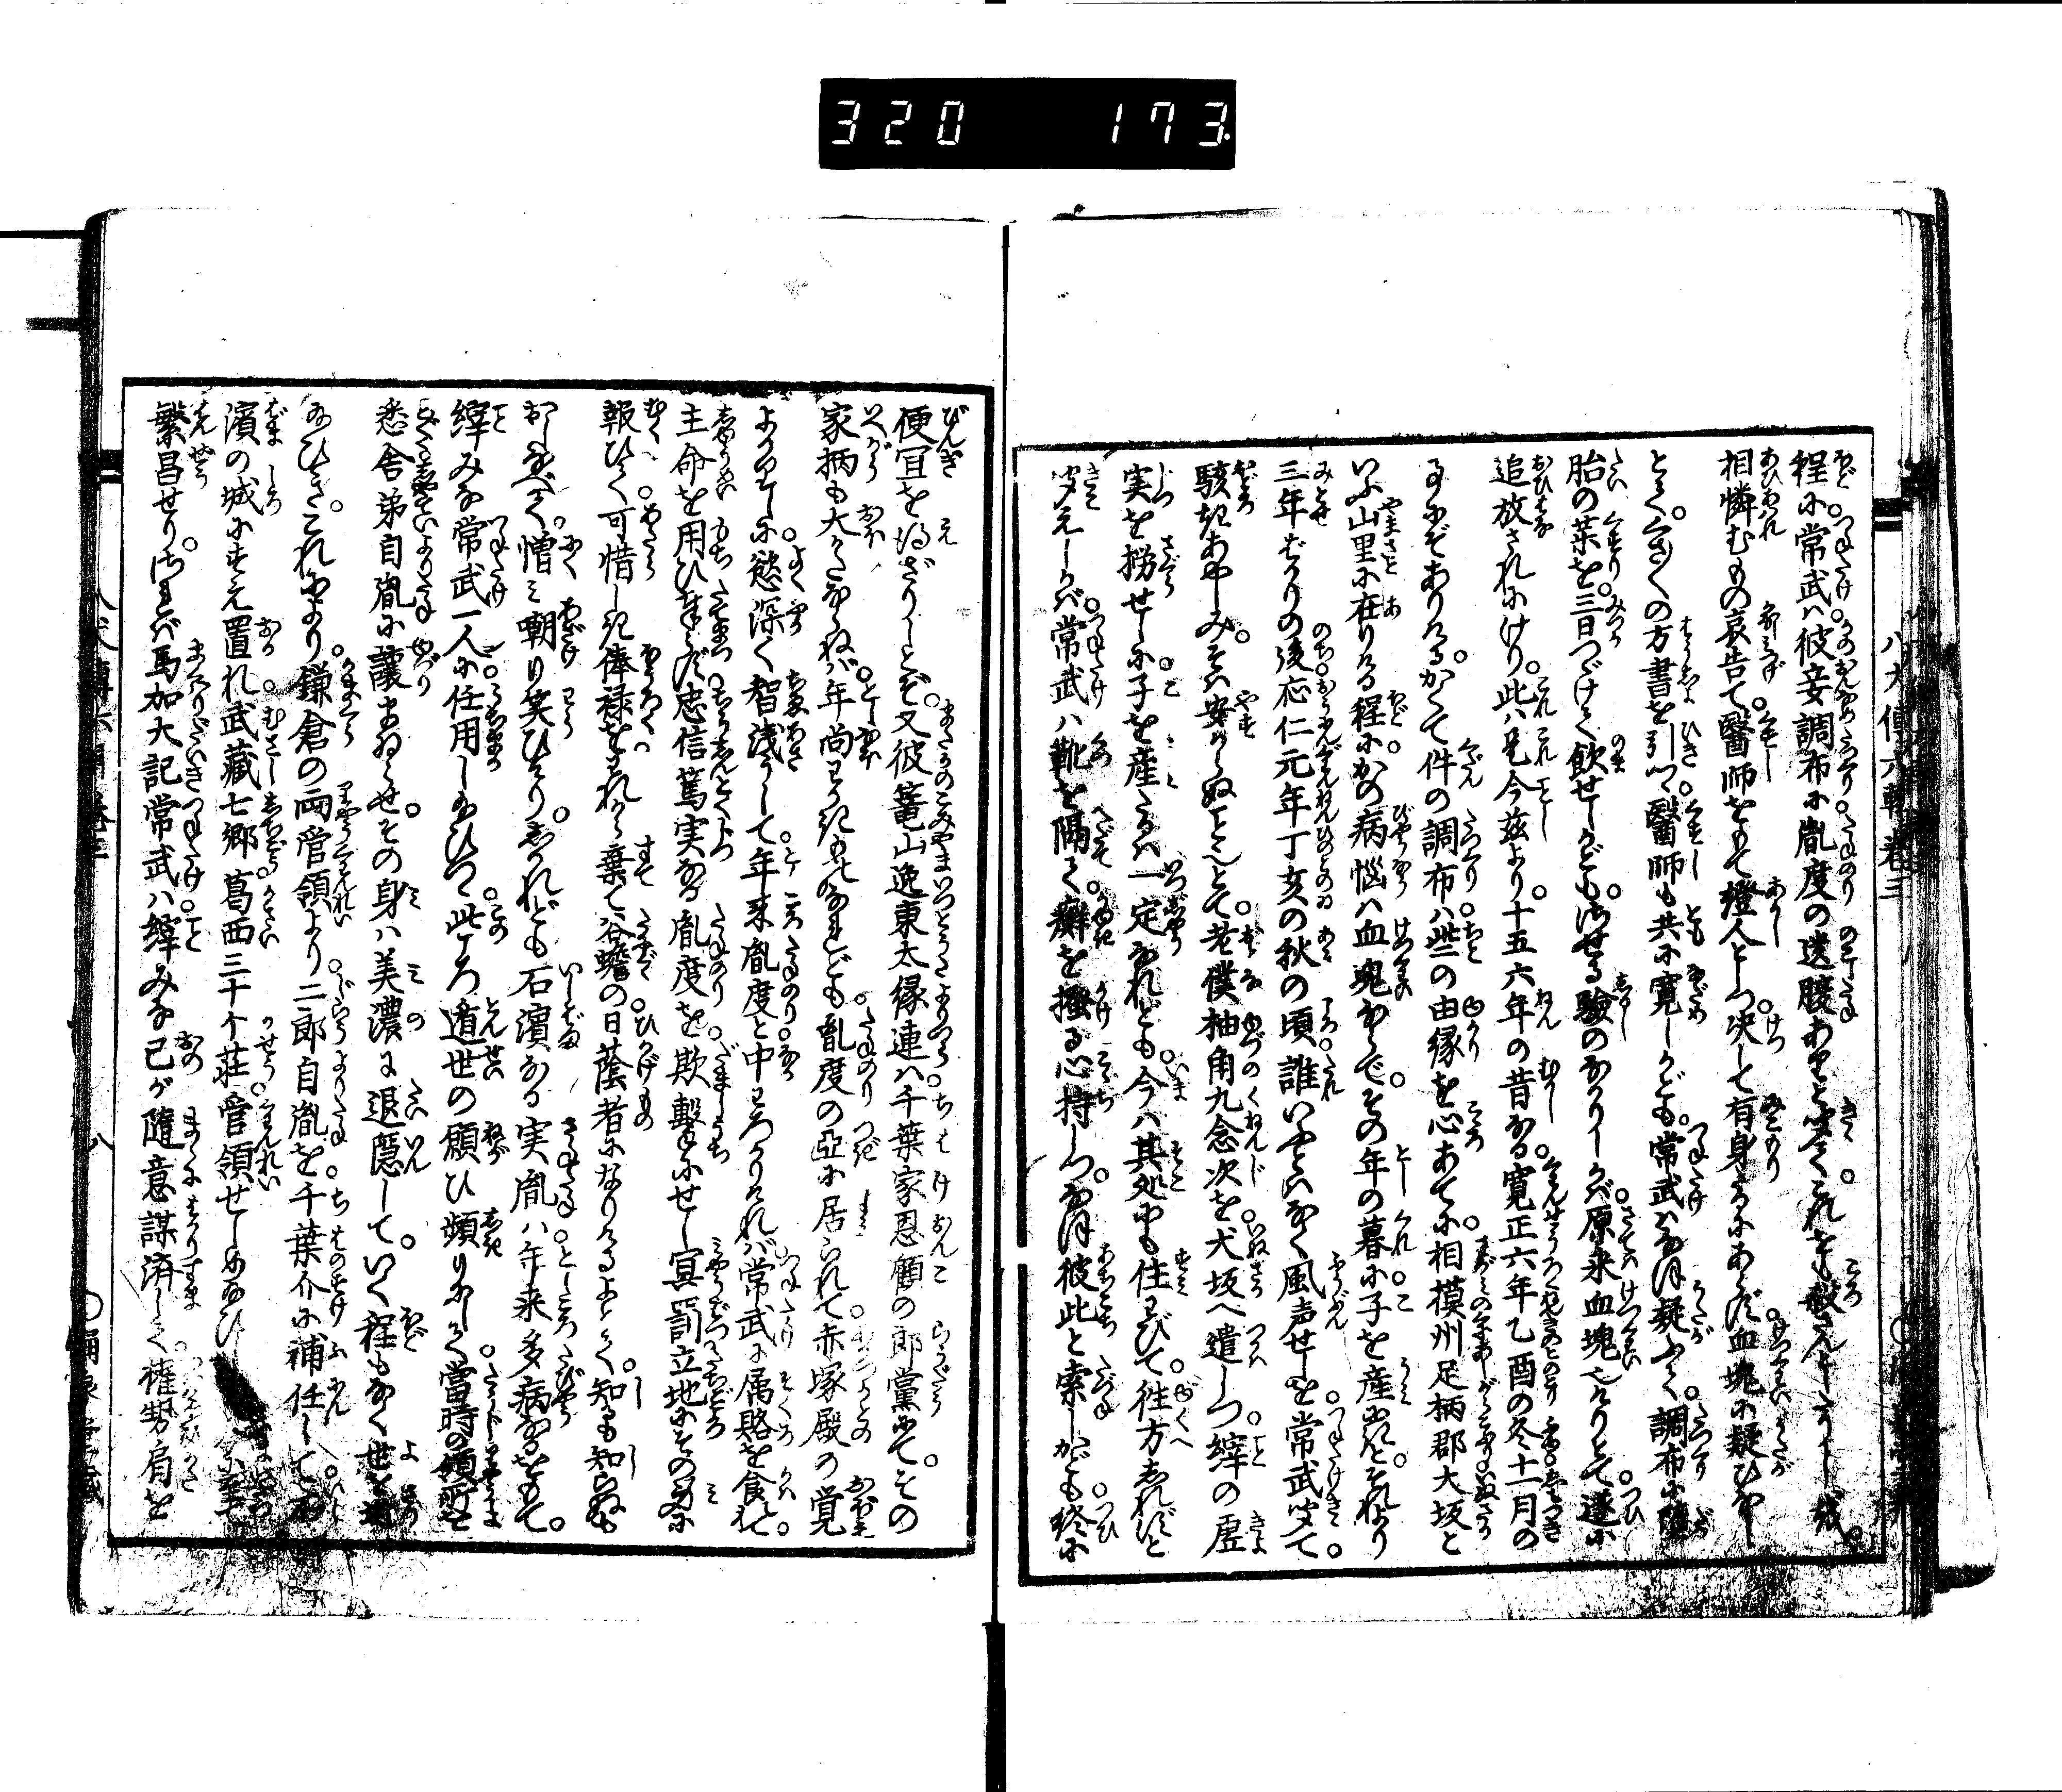 320 173
八犬傳六輯巻三
程に。常武は彼妾調布に胤度の遺腹ありと聞て。これをも殺さんとしたりしを。
相憐むもの哀告て。醫師をもて證人とし。決して有身たるにあらず。血塊に疑ひなし
とて。くさ〴〵の方書を引つ。醫師も共に寛しかども。常武はなほ疑ふて。調布に堕
胎の薬を。三日つゞけて飲せしかども。させる驗のなかりしかば。原来血塊也けりとて。遂に
追放されにけり。此は是今茲より。十五六年の昔なる。寛正六年乙酉の冬十一月の
事にぞありける。かくて件の調布は。些の由縁を心あてに。相摸州足柄郡犬坂と
いふ山里に在りける程に。かの病惱は血塊ならで。その年の暮に子を産にき。それより
三年ばかりの後。応仁元年丁亥の秋の頃。誰いふとはなく風声せしを。常武聞て。
駭きあやしみ。そは安からぬこと也とて。老僕柚角九念次を。犬坂へ遣しつ。縡の虚
実を撈せしに。子を産たるは一定なれども。今は其処にも住わびて。徃方しれずと
聞えしかば。常武は靴を隔て。癬を掻る心持しつ。なほ彼此と索しかども。終に
便宜を得ざりしとぞ。又彼篭山逸東太縁連は。千葉家恩顧の郎黨にて。その
家柄も大かたならねば。年尚わかきものなれども。胤度の亞に居られて。赤塚殿の覚
よかりしに。慾深く智浅うして。年来胤度と中わろかりければ。常武に属賂を食れて。
主命を用ひ奉らず。忠信篤実なる胤度を欺撃にせし。冥罰立地にその身に
報ひて。可惜しき俸禄をはなれ。棄て谷蟾の日蔭者になりけるよとて。知も知らぬも
おしなべて。憎み嘲り笑ひけり。しかれども石濱なる実胤は。年来多病なるをもて。
縡みな常武一人に任用し給ひつ。此ころ遁世の願ひ頻りにして。當時の領所を
悉舎弟自胤に讓まゐらせ。その身は美濃に退隠して。いく程もなく世を逝
給ひき。これにより。鎌倉の両管領より。二郎自胤を千葉介に補任して。石
濱の城にすえ置れ。武藏七郷葛西三十个荘。管領せしめ給ひ
繁昌せり。されば馬加大記常武は。縡みな己が隨意謀済して。權勢肩を
八犬傳六輯巻三
八